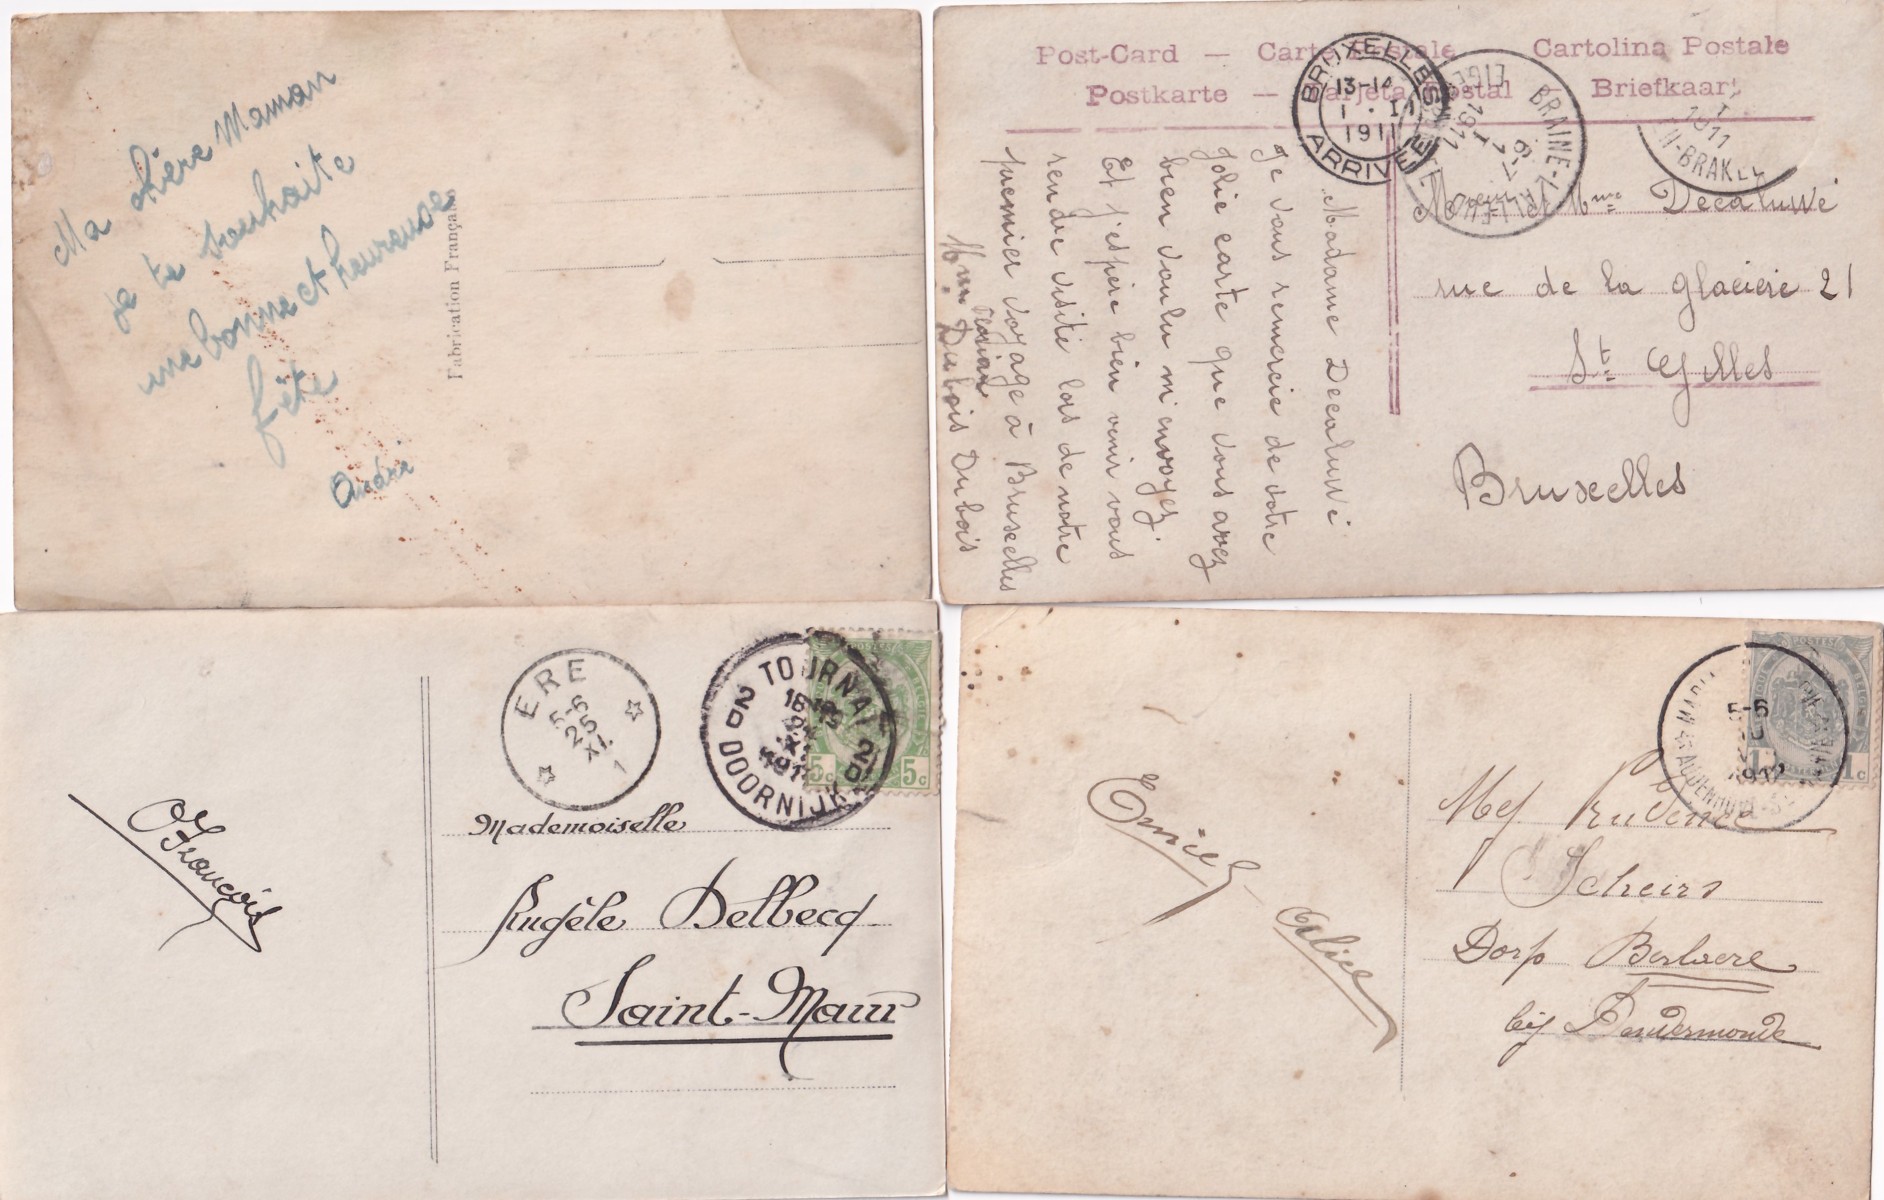 Ma chère Maman
je te souhaite
une bonne et heureuse
fête
André
Fabrication Française
Post-Card — Carte Postale Cartolina Postale
Postkarte — Tarjeta Postal Briefkaart
BRUXELLES
13-14
1 · I
1911
ARRIVÉE
BRAINE-L
1911
H-BRAK
Madame Decaluwé
Je vous remercie de votre
jolie carte que vous avez
bien voulu m'envoyez.
Et j'espère bien venir vous
rendre visite lors de notre
premier voyage à Bruxelles
Mme Dubois Dubois
Mr et Mme Decaluwé
rue de la glacière 21
St Gilles
Bruxelles
ERE
5-6
25
XI
TOURNAI
2D 2D
DOORNIJK
5c 5c
François
Mademoiselle
Angèle Delbecq
Saint-Maur
POSTES
5-6
1912
1c 1c
Emiel
Mej Prudence
Scheirs
Dorp Berlaere
bij Dendermonde